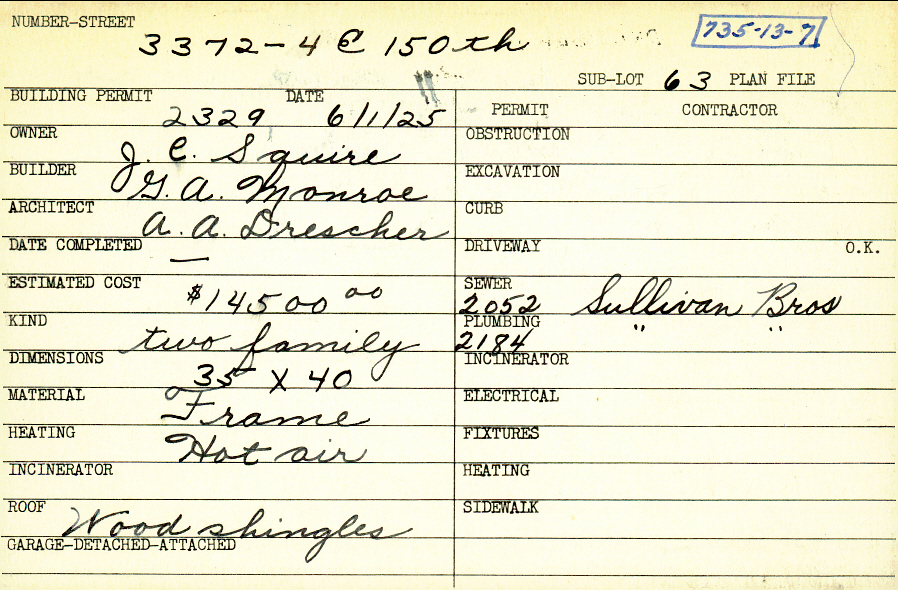 NUMBER-STREET
3372-4 E 150th
735-13-7
SUB-LOT 63 PLAN FILE
BUILDING PERMIT 2329 DATE 6/1/25
OWNER J. C. Squire
BUILDER G. A. Monroe
ARCHITECT A. A. Drescher
DATE COMPLETED —
ESTIMATED COST $14500 00
KIND two family
DIMENSIONS 35 X 40
MATERIAL Frame
HEATING Hot air
INCINERATOR
ROOF Wood shingles
GARAGE-DETACHED-ATTACHED
PERMIT CONTRACTOR
OBSTRUCTION
EXCAVATION
CURB
DRIVEWAY O.K.
SEWER 2052 Sullivan Bros
PLUMBING 2184 " "
INCINERATOR
ELECTRICAL
FIXTURES
HEATING
SIDEWALK